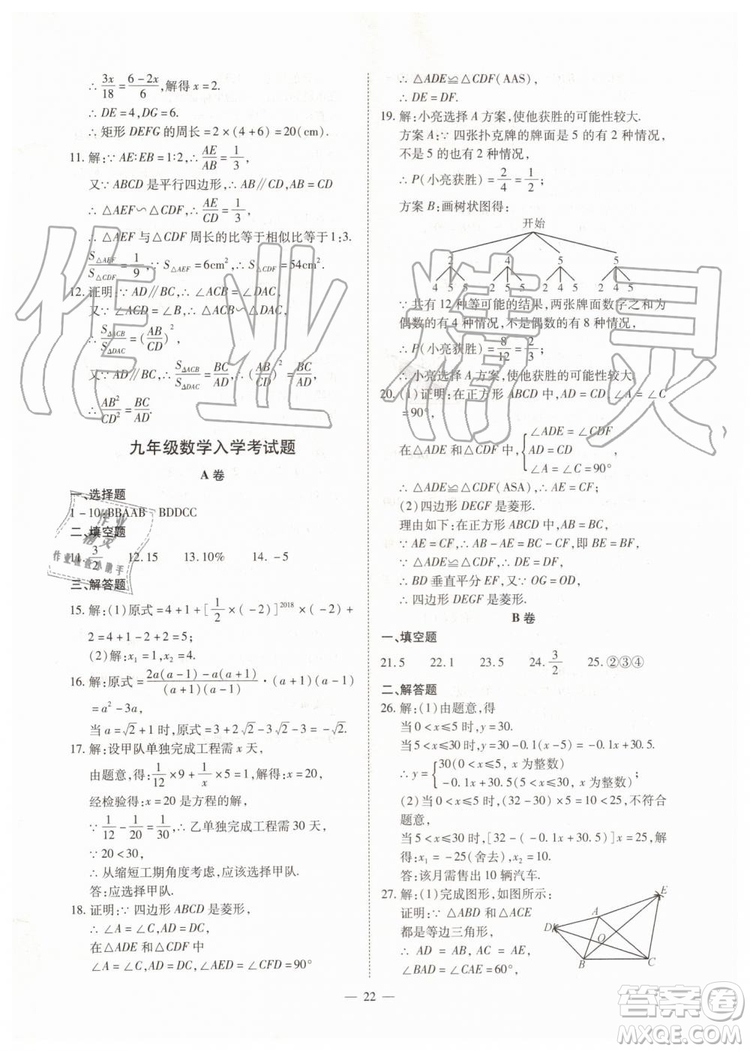 ∴ 3x/18 = (6-2x)/6, 解得 x=2.
∴ DE=4, DG=6.
∴ 矩形 DEFG 的周长 = 2×(4+6) = 20(cm).
11. 解:∵ AE∶EB=1∶2, ∴ AE/AB = 1/3,
又∵ ABCD 是平行四边形, ∴ AB∥CD,
∴ △AEF∽△CDF, ∴ AE/CD = 1/3,
∴ △AEF 与 △CDF 周长的比等于相似比等于 1∶3.
S△AEF/S△CDF = 1/9, ∵ S△AEF=6cm², ∴ S△CDF=54cm².
12. 证明:∵ AD∥BC, ∴ ∠ACB=∠DAC,
又∵ ∠ACD=∠B, ∴ △ABC∽△DCA,
∴ S△ACB/S△DAC = (AB/CD)²
又∵ AD∥BC, ∴ S△ACB/S△DAC = BC/AD,
∴ AB²/CD² = BC/AD.
九年级数学入学考试题
A 卷
一、选择题
1-10. BBAAB BDDCC
二、填空题
11. 3/2 12.15 13.10% 14.-5
三、解答题
15. 解:(1)原式=4+1+[1/2×(-2)]²⁰¹⁸×(-2)+2
=5
(2)解:x₁=2, x₂=4.
16. 解:原式=[2a(a-1)-a(a+1)]/[(a+1)(a-1)]·(a+1)(a-1)
=a²-3a,
当 a=√2+1 时,原式=3+2√2-3√2-3=-√2.
17. 解:设甲队单独完成工程需 x 天,
由题意,得 1/12×9+1/x×5=1,
经检验得:x=20 是方程的解,
∵ 1/12-1/20=1/30, ∴ 乙单独完成工程需 30 天,
∵ 20<30,
∴ 从缩短工期角度考虑,应该选择甲队.
答:应选择甲队.
18. 证明:∵ 四边形 ABCD 是菱形,
∴ ∠A=∠C, AD=CD,
在 △ADE 和 △CDF 中
∠A=∠C, ∠AED=∠CFD=90°
∴ △ADE≌△CDF(AAS)
∴ DE=DF.
19. 解:小亮选择 A 方案,使他获胜的可能性较大.
方案 A:∵ 四张扑克牌的牌面是 5 的有 2 种情况,
不是 5 的也有 2 种情况,
∴ P(小亮获胜)=2/4=1/2;
方案 B:画树状图得:
开始
2 4 5 5
4 5 5 2 5 5 2 4 5 2 4 5
∵ 共有 12 种等可能的结果,两张牌面数字之和为
偶数的有 4 种情况,不是偶数的有 8 种情况,
∴ P(小亮获胜)=8/12=2/3.
∴ 小亮选择 A 方案,使他获胜的可能性较大.
20. (1)证明:在正方形 ABCD 中, AD=CD, ∠A=∠C
=90°,
在 △ADE 和 △CDF 中 {∠ADE=∠CDF
AD=CD
∠A=∠C=90°
∴ △ADE≌△CDF(ASA), ∴ AE=CF;
(2)四边形 DEGF 是菱形.
理由如下:在正方形 ABCD 中, AB=BC,
∵ AE=CF, ∴ AB-AE=BC-CF,
即 BE=BF,
∵ △ADE≌△CDF, ∴ DE=DF,
∴ BD 垂直平分 EF, ∴ EO=FO.
∴ 四边形 DEGF 是菱形.
B 卷
一、填空题
21.5 22.1 23.5 24. 3/2 25.②③④
二、解答题
26. 解:(1)由题意,得
当 0<x≤5 时, y=30.
当 5<x≤30 时, y=30-0.1(x-5)=-0.1x+30.5.
∴ y={30(0<x≤5, 且 x 为整数)
-0.1x+30.5(5<x≤30, 且 x 为整数)
(2)当 0<x≤5 时, (32-30)×5=10<25, 不符合
题意,
当 5<x≤30 时, [32-(-0.1x+30.5)]x=25,
解得:x₁=-25(舍去), x₂=10.
答:该月需售出 10 辆汽车.
27. 解:(1)完成图形,如图所示:
证明:∵ △ABD 和 △ACE
都是等边三角形,
∴ AD=AB, AC=AE,
∠BAD=∠CAE=60°,
A
B
C
D
E
O
— 22 —
作业精灵
作业精灵
作业检查小助手
答案圈
MXQE.COM